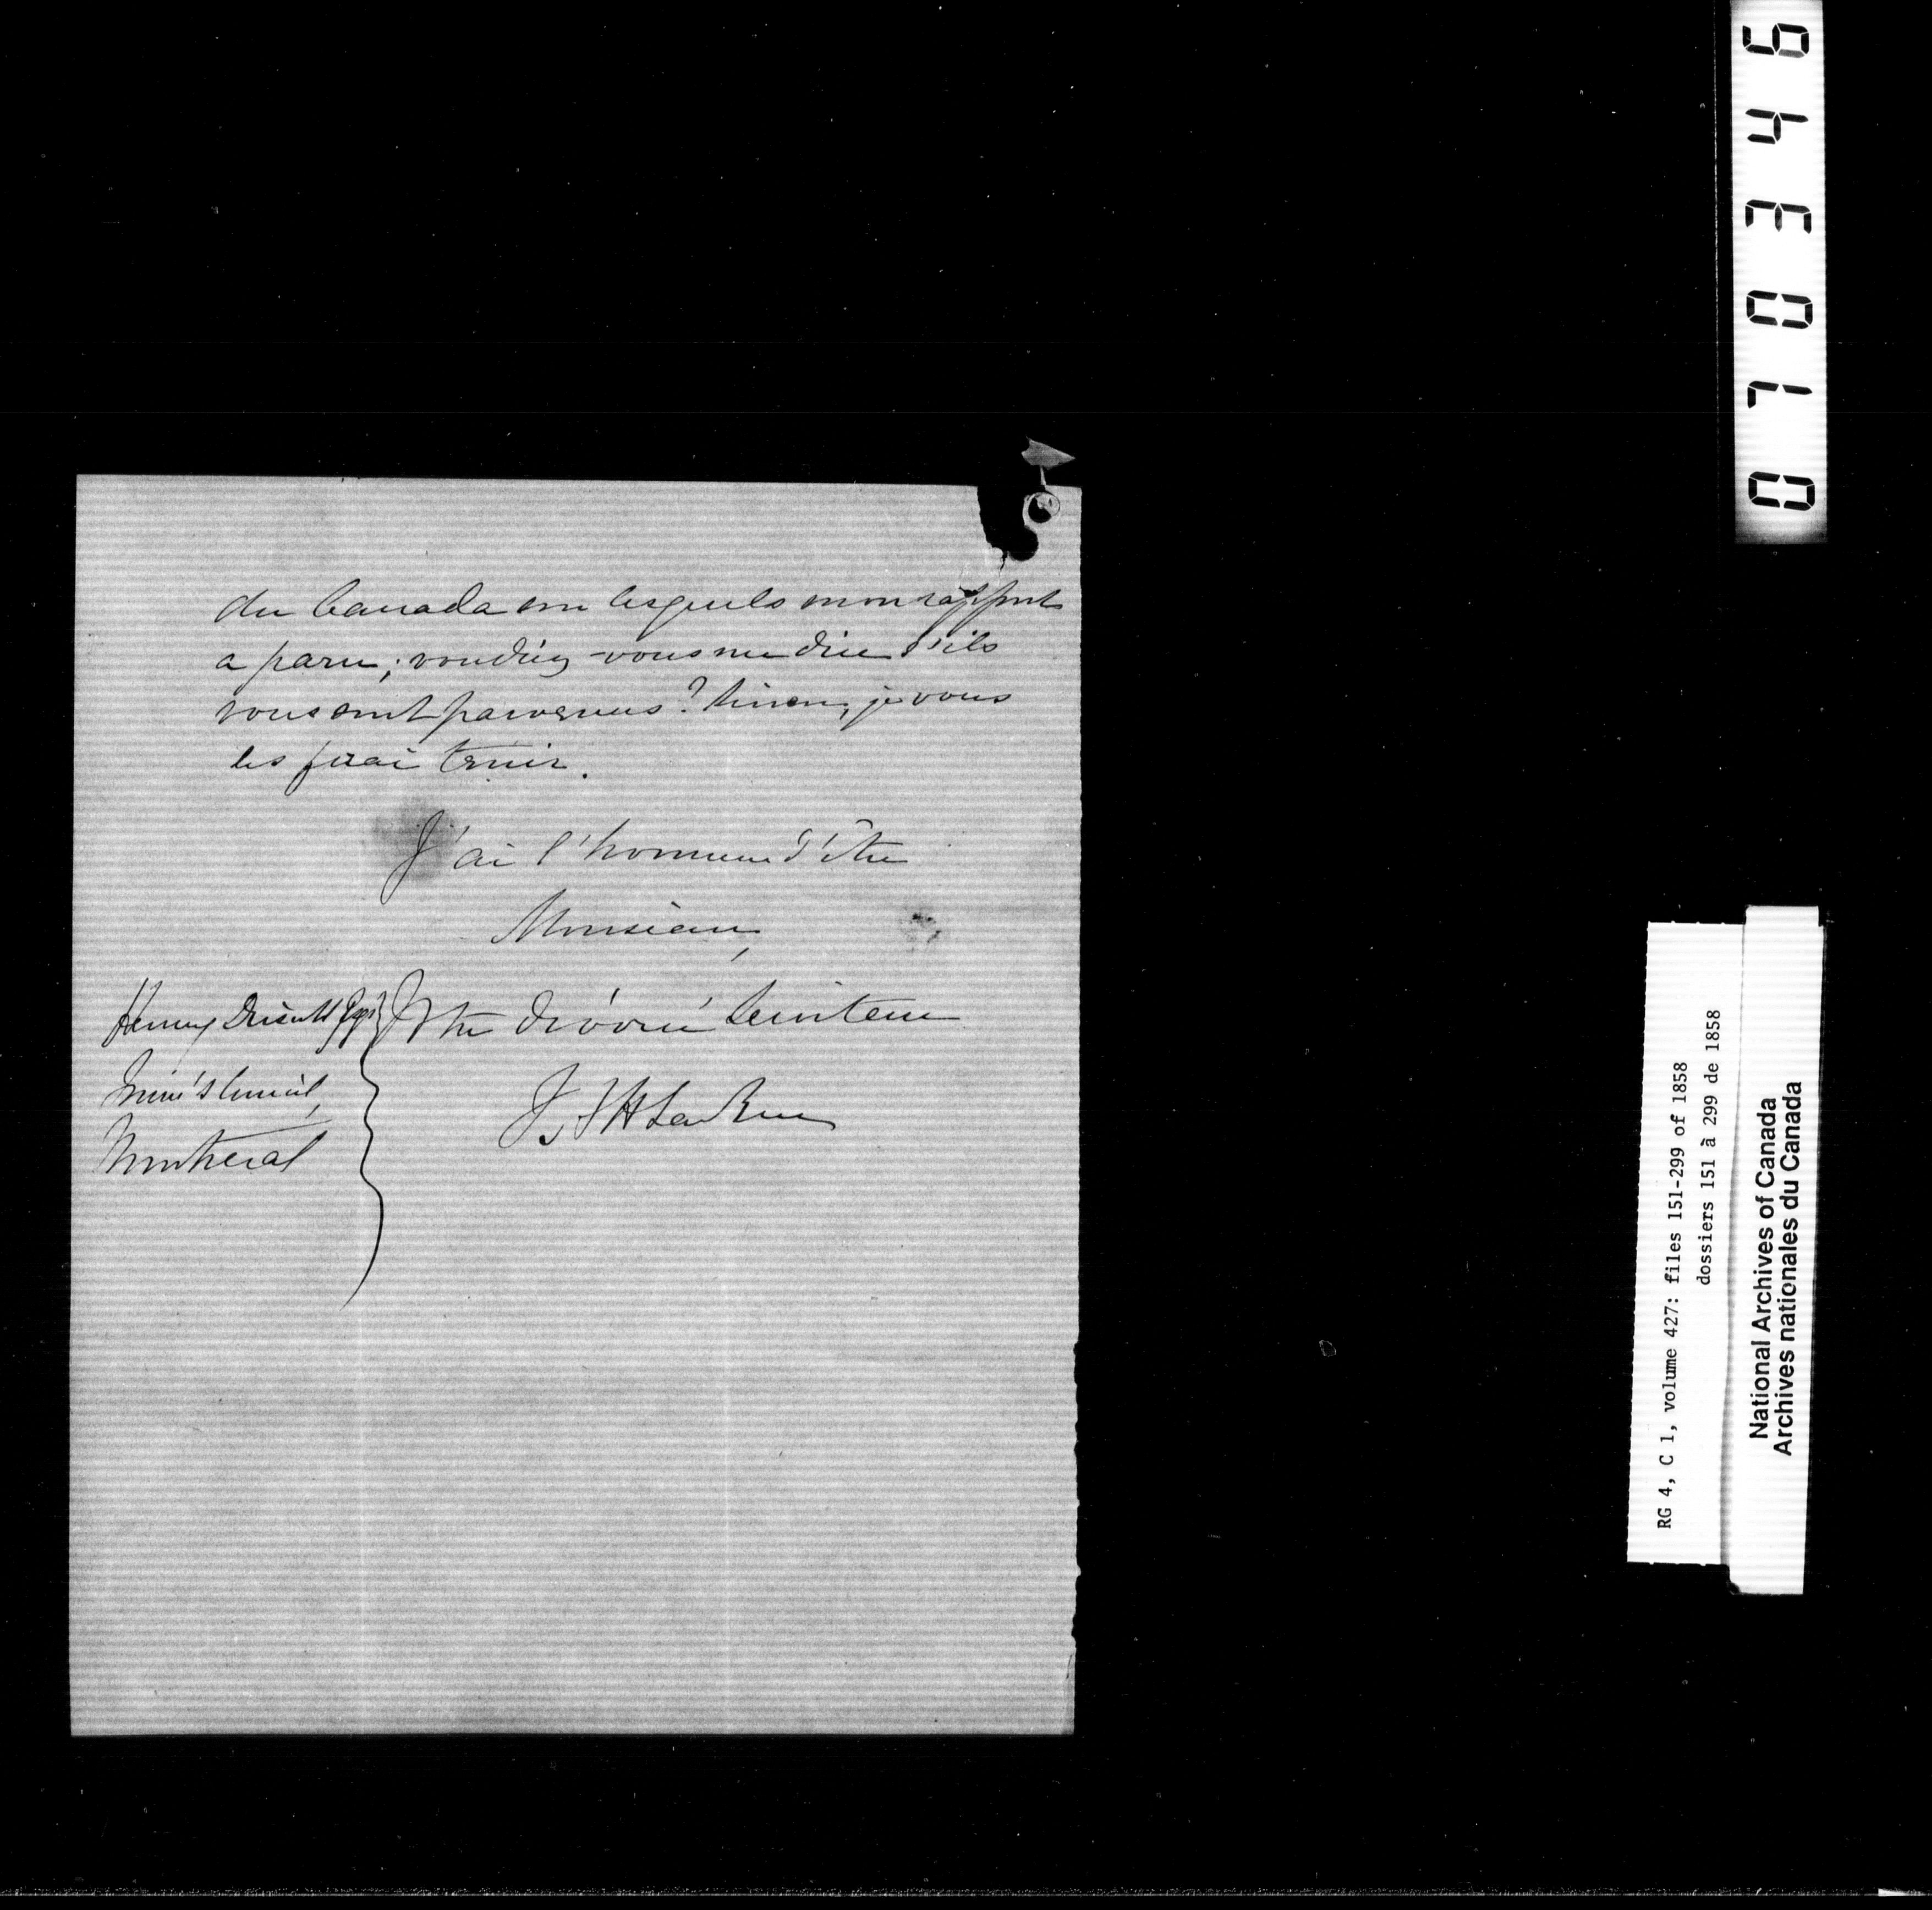 du Canada sur lesquels mon rapport
a paru; voudriez-vous me dire s'ils
vous sont parvenus? Sinon, je vous
les ferai tenir.
J'ai l'honneur d'être
Monsieur,
Votre dévoué Serviteur
Henry Driscoll
Montreal
010346
RG 4, C 1, volume 427: files 151-299 of 1858
dossiers 151 à 299 de 1858
National Archives of Canada
Archives nationales du Canada